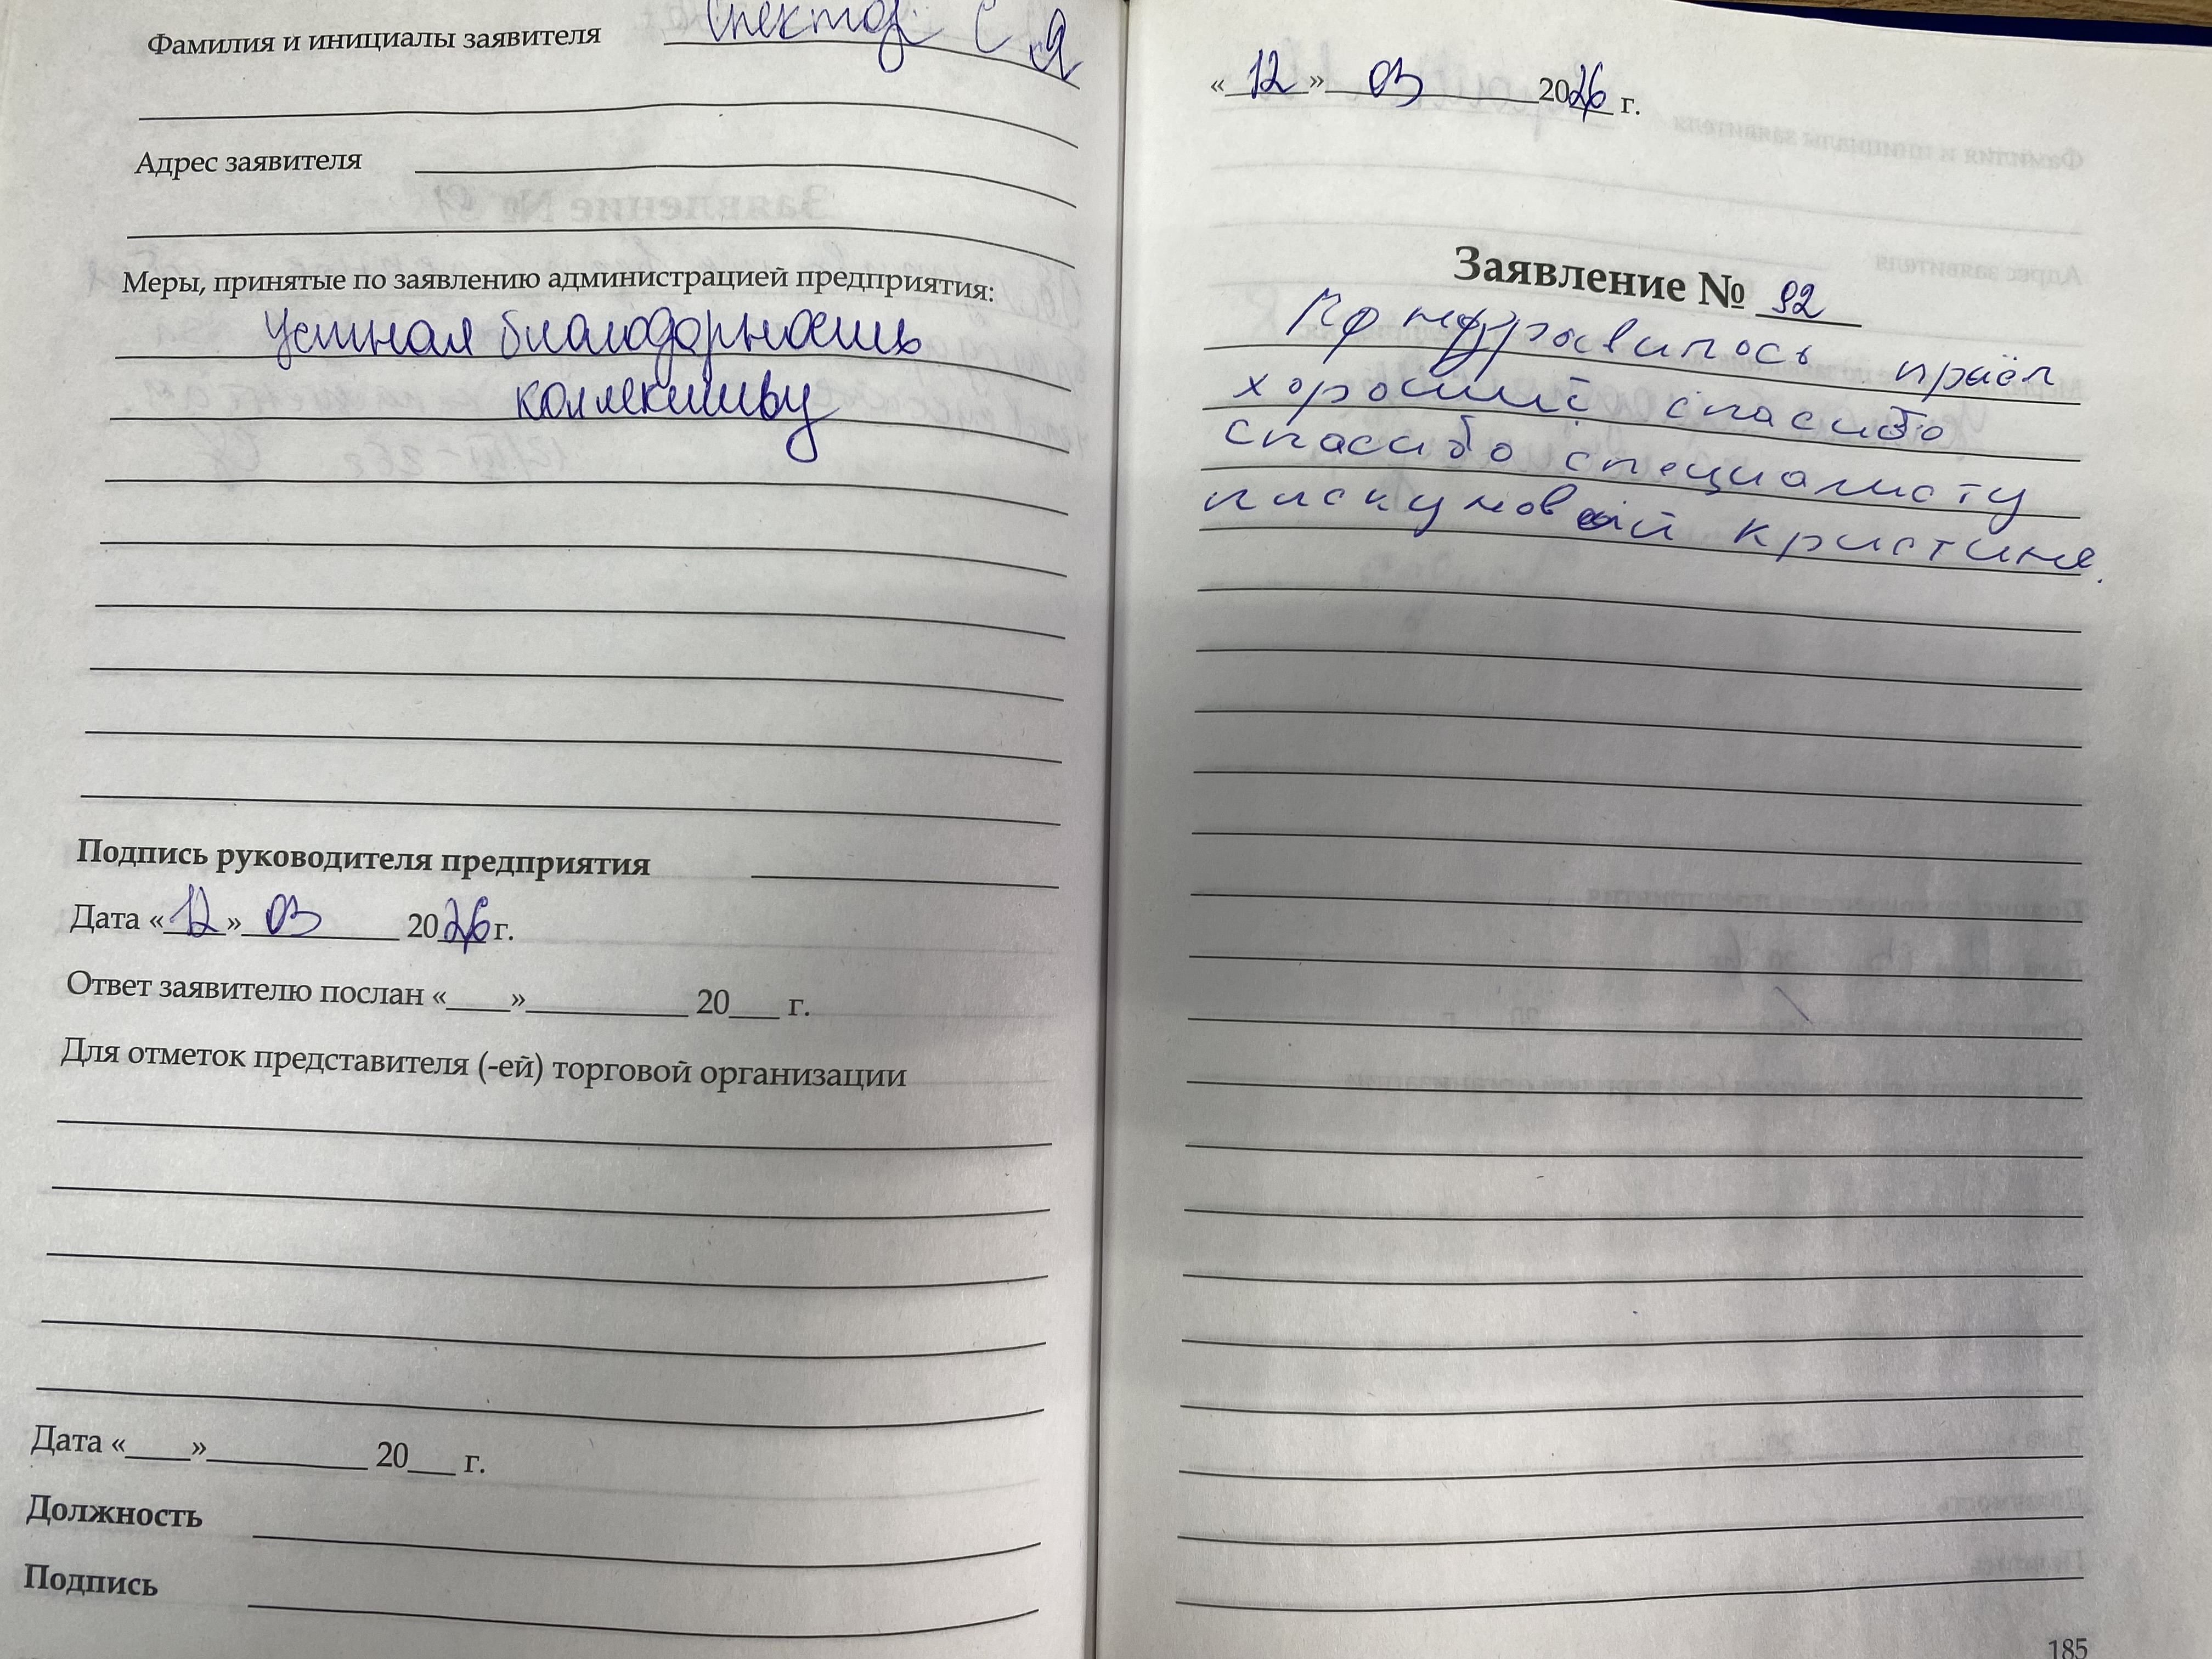 Фамилия и инициалы заявителя Спектор С Я
Адрес заявителя
Меры, принятые по заявлению администрацией предприятия:
Устная благодарность
коллективу
Подпись руководителя предприятия
Дата «12» 03 2026 г.
Ответ заявителю послан «____»__________ 20___ г.
Для отметок представителя (-ей) торговой организации
Дата «____»__________ 20___ г.
Должность
Подпись
«12» 03 2026 г.
Заявление № 92
приём
хороший спасибо
спасибо специалисту
пискуновой кристине.
185